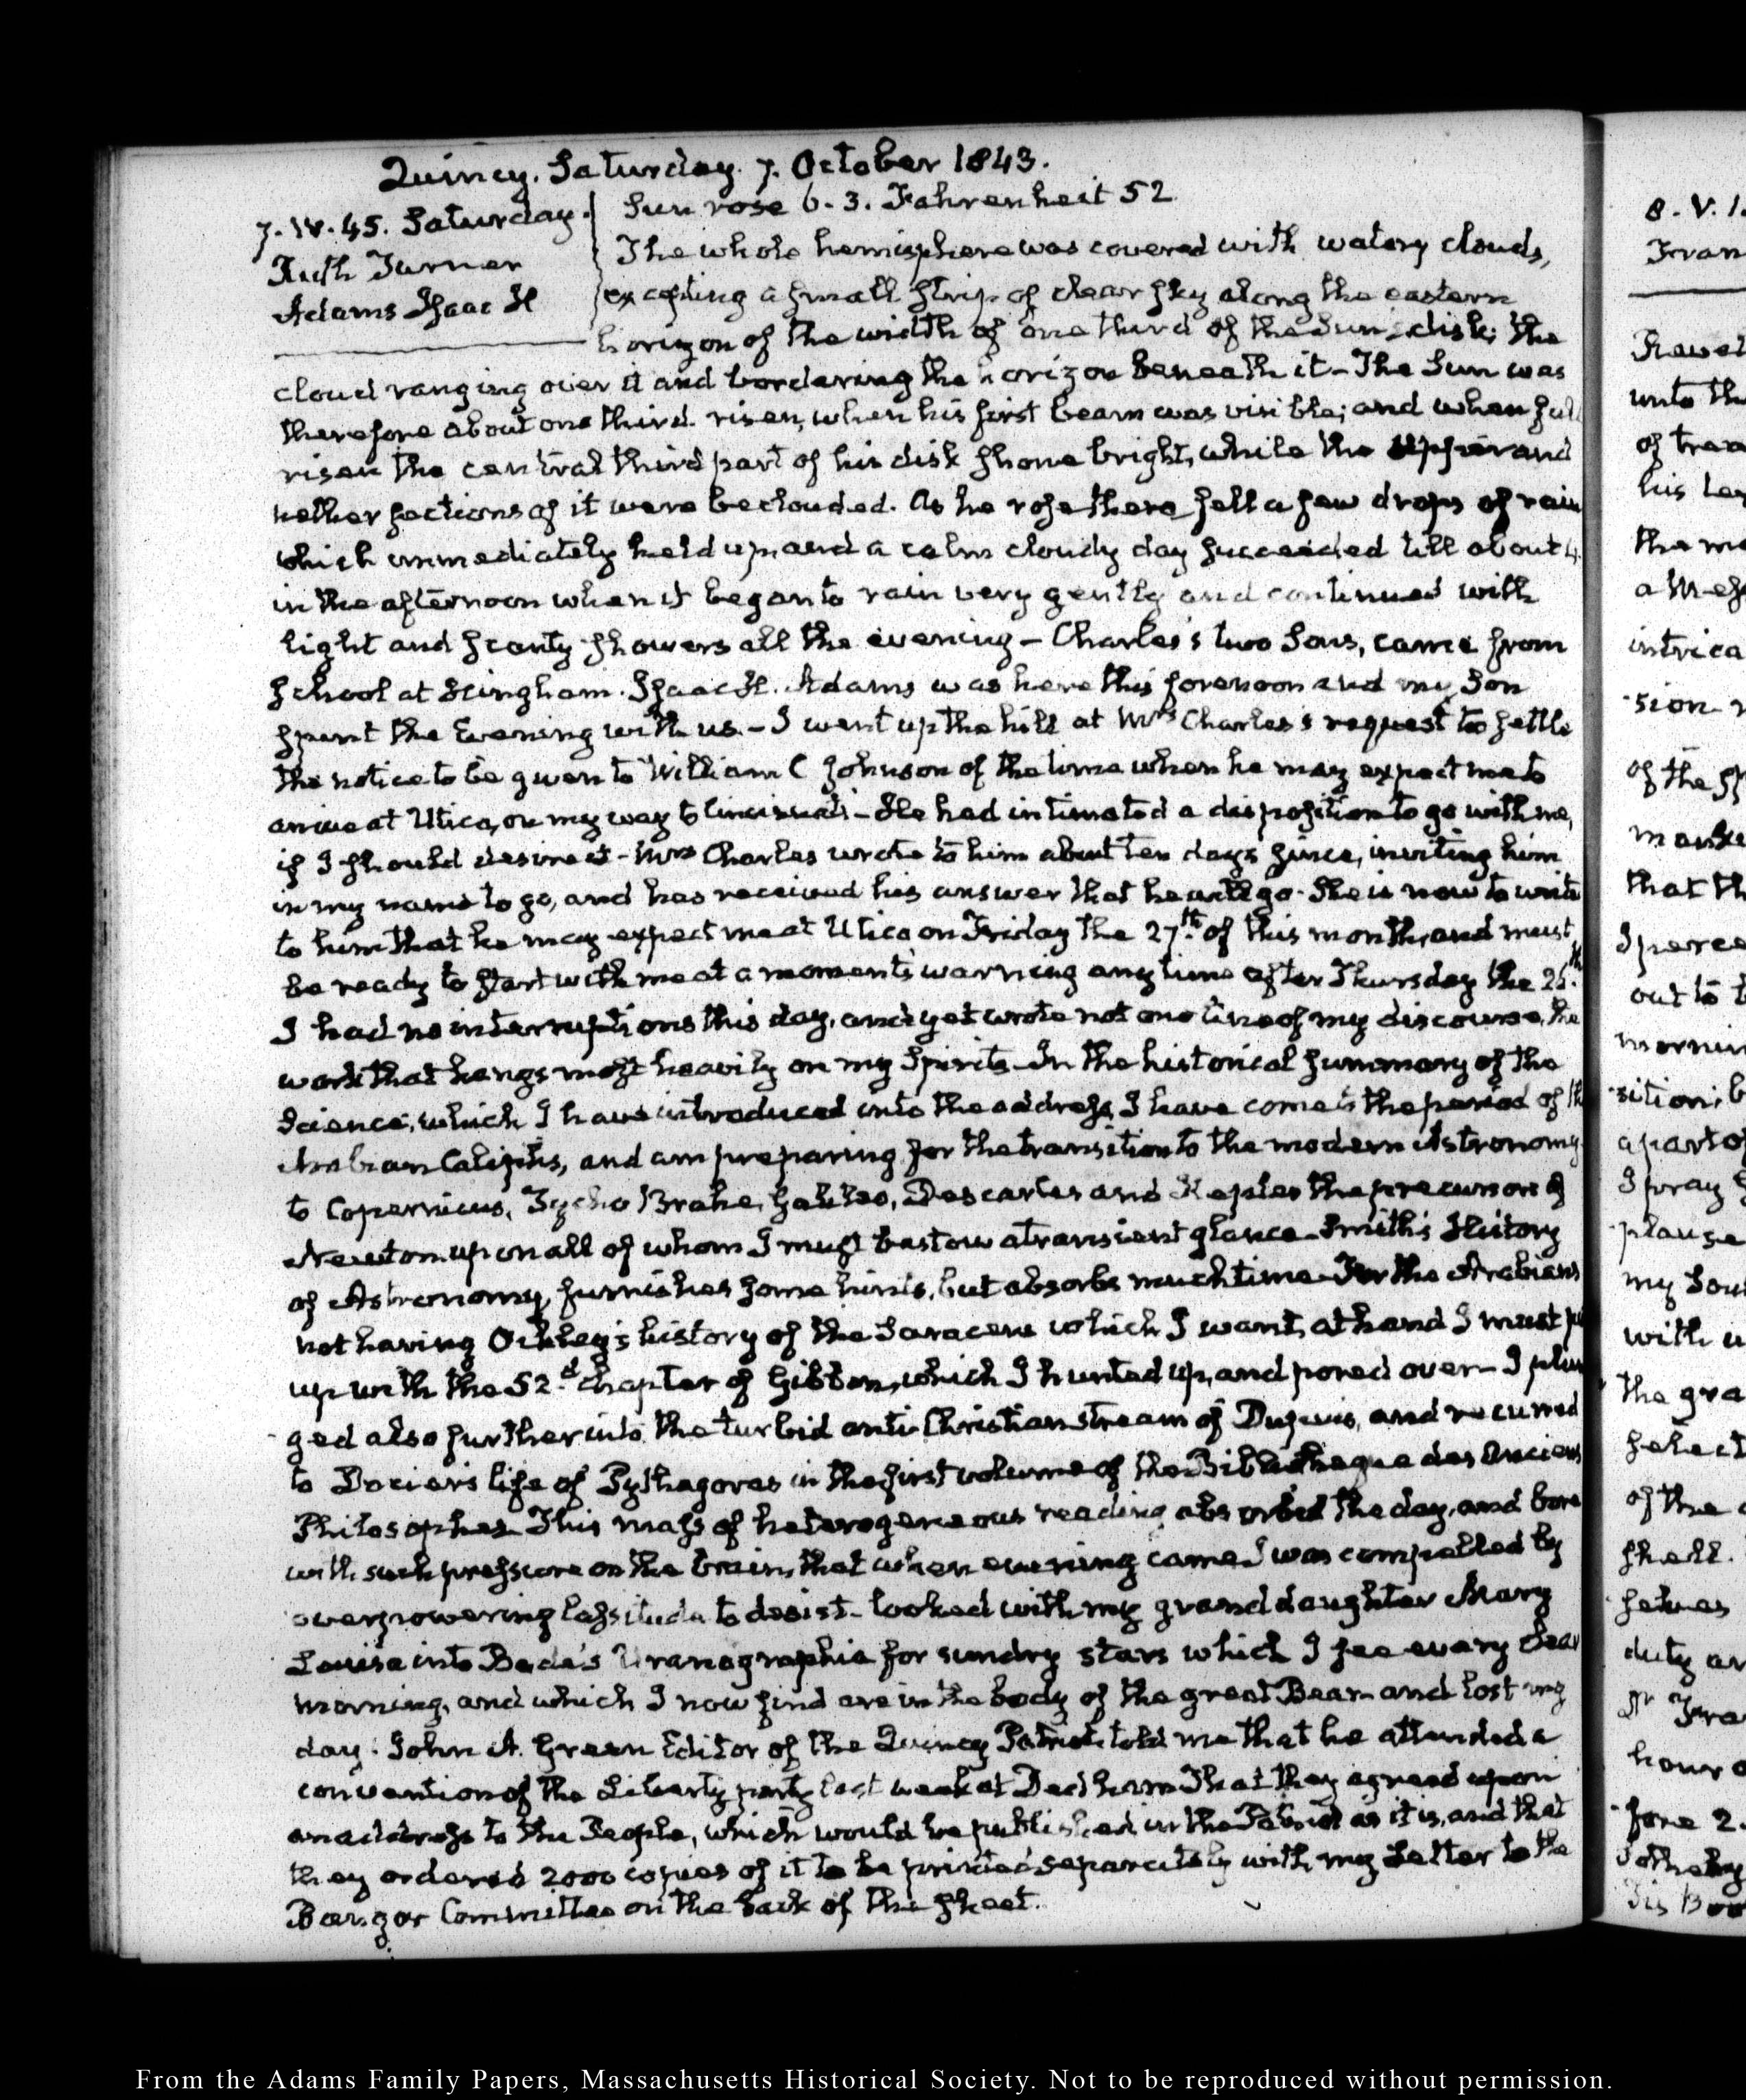 Quincy. Saturday. 7. October 1843.
7. IV. 45. Saturday.
Ruth Turner
Adams Isaac H
Sun rose 6. 3. Fahrenheit 52
The whole hemisphere was covered with watery clouds,
excepting a small strip of clear sky along the eastern
horizon of the width of one third of the Sun's disk; the
cloud ranging over it and bordering the horizon beneath it - The Sun was
therefore about one third risen, when his first beam was visible; and when full
risen the central third part of his disk shone bright, while the upper and
nether sections of it were beclouded. As he rose there fell a few drops of rain
which immediately held up and a calm cloudy day succeeded till about 4.
in the afternoon when it began to rain very gently and continued with
light and scanty showers all the evening - Charles's two Sons, came from
School at Hingham. Isaac H. Adams was here this forenoon and my Son
spent the Evening with us. - I went up the hill at Mrs Charles's request to settle
the notice to be given to William C Johnson of the time when he may expect me to
arrive at Utica, on my way to Cincinnati - He had intimated a disposition to go with me,
if I should desire it - Mrs Charles wrote to him about ten days since, inviting him
in my name to go, and has received his answer that he will go. She is now to write
to him that he may expect me at Utica on Friday the 27th. of this month, and must
be ready to start with me at a moment's warning any time after Thursday the 26th.
I had no interruptions this day, and yet wrote not one line of my discourse, the
work that hangs most heavily on my Spirits - In the historical summary of the
Science, which I have introduced into the address, I have come to the period of the
Arabian Caliphs, and am preparing for the transition to the modern Astronomy
to Copernicus, Tycho Brahe, Galileo, Descartes and Kepler the precursor of
Newton upon all of whom I must bestow a transient glance - Smith's History
of Astronomy, furnishes some hints, but absorbs much time - For the Arabians
not having Ockley's history of the Saracens which I want, at hand I must put
up with the 52d. chapter of Gibbon, which I hunted up, and pored over - I plun
-ged also further into the turbid anti-Christian stream of Dupuis, and recurred
to Dacier's life of Pythagoras in the first volume of the Bibliotheque des Anciens
Philosophes. This mass of heterogeneous reading absorbed the day, and bore
with such pressure on the brain, that when evening came I was compelled by
overpowering lassitude to desist - looked with my grand daughter Mary
Louisa into Bode's Uranographia for sundry stars which I see every clear
morning, and which I now find are in the body of the great Bear - and lost my
day. John A. Green Editor of the Quincy Patriot, told me that he attended a
convention of the Liberty party last week at Dedham That they agreed upon
an address to the People, which would be published in the Patriot as it is, and that
they ordered 2000 copies of it to be printed separately with my Letter to the
Bangor Committee on the back of the sheet.
8. V. 1.
Fran
unto th
of trea
his
the mo
intrica
-sion
that th
out to
-sition; b
a part of
I pray
plause
my Sou
with
the gra
select
of the
shall.
duty
hour
-fore 2.
From the Adams Family Papers, Massachusetts Historical Society. Not to be reproduced without permission.